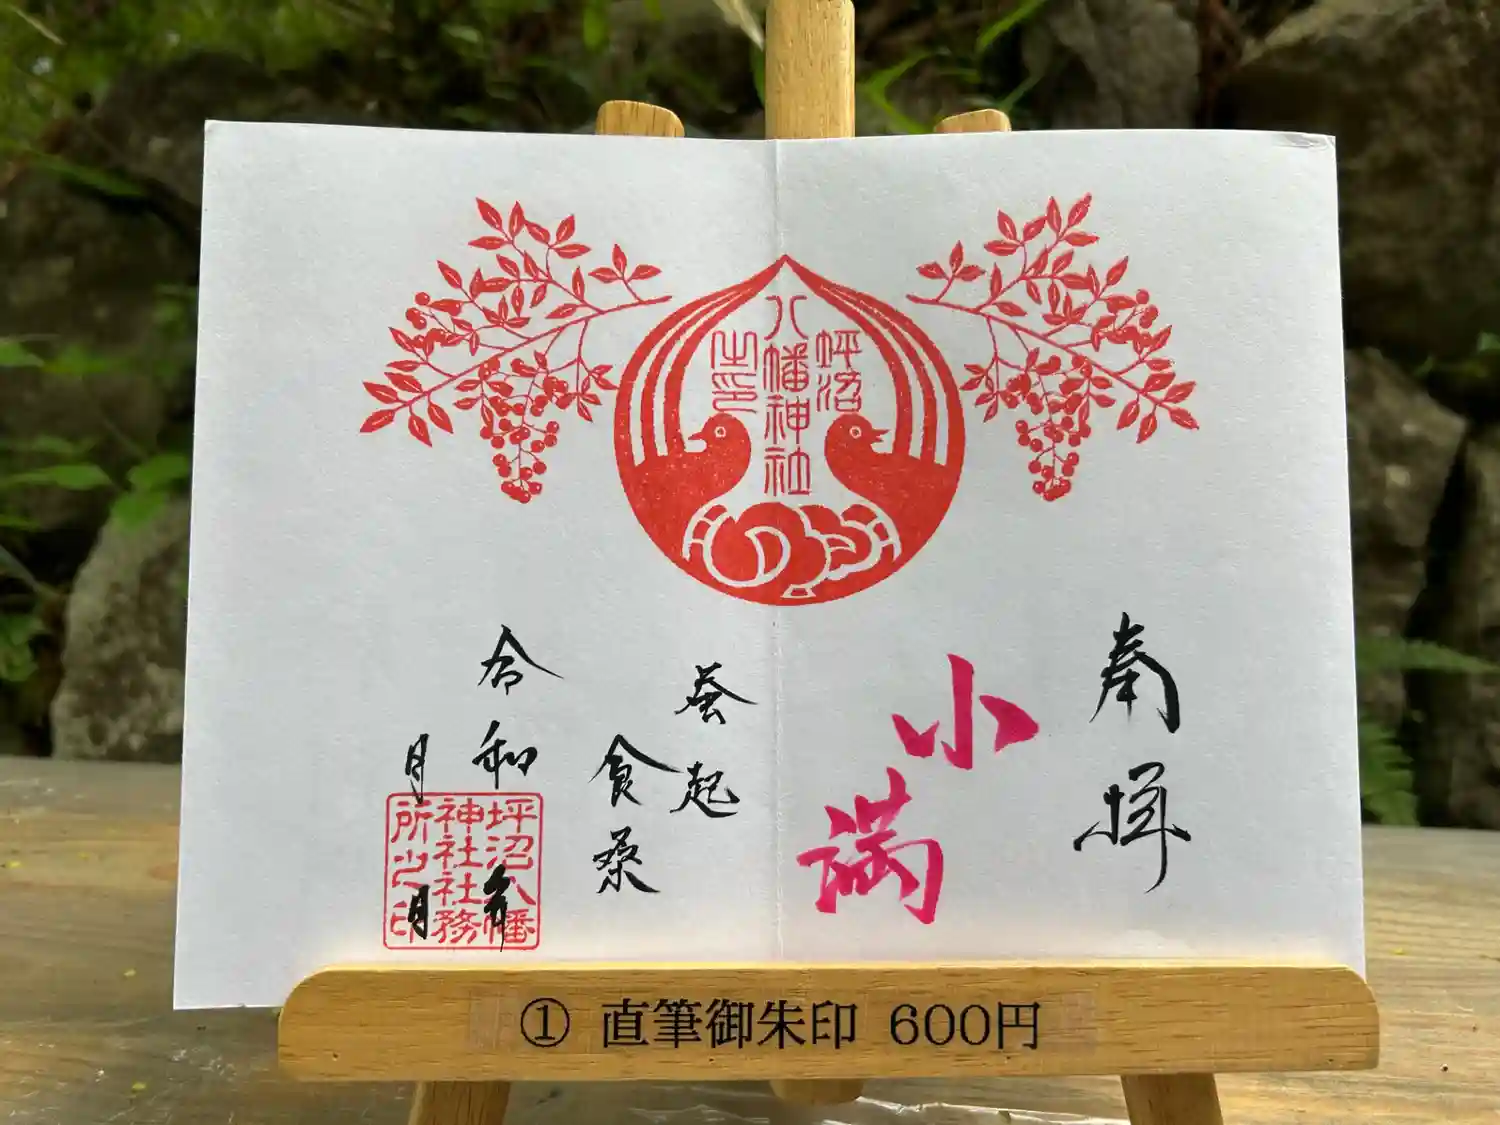 坪沼
八幡神社
之印
奉拝
小満
蚕起
食桑
令和 年
月 日
坪沼八幡
神社社務
所之印
① 直筆御朱印 600円